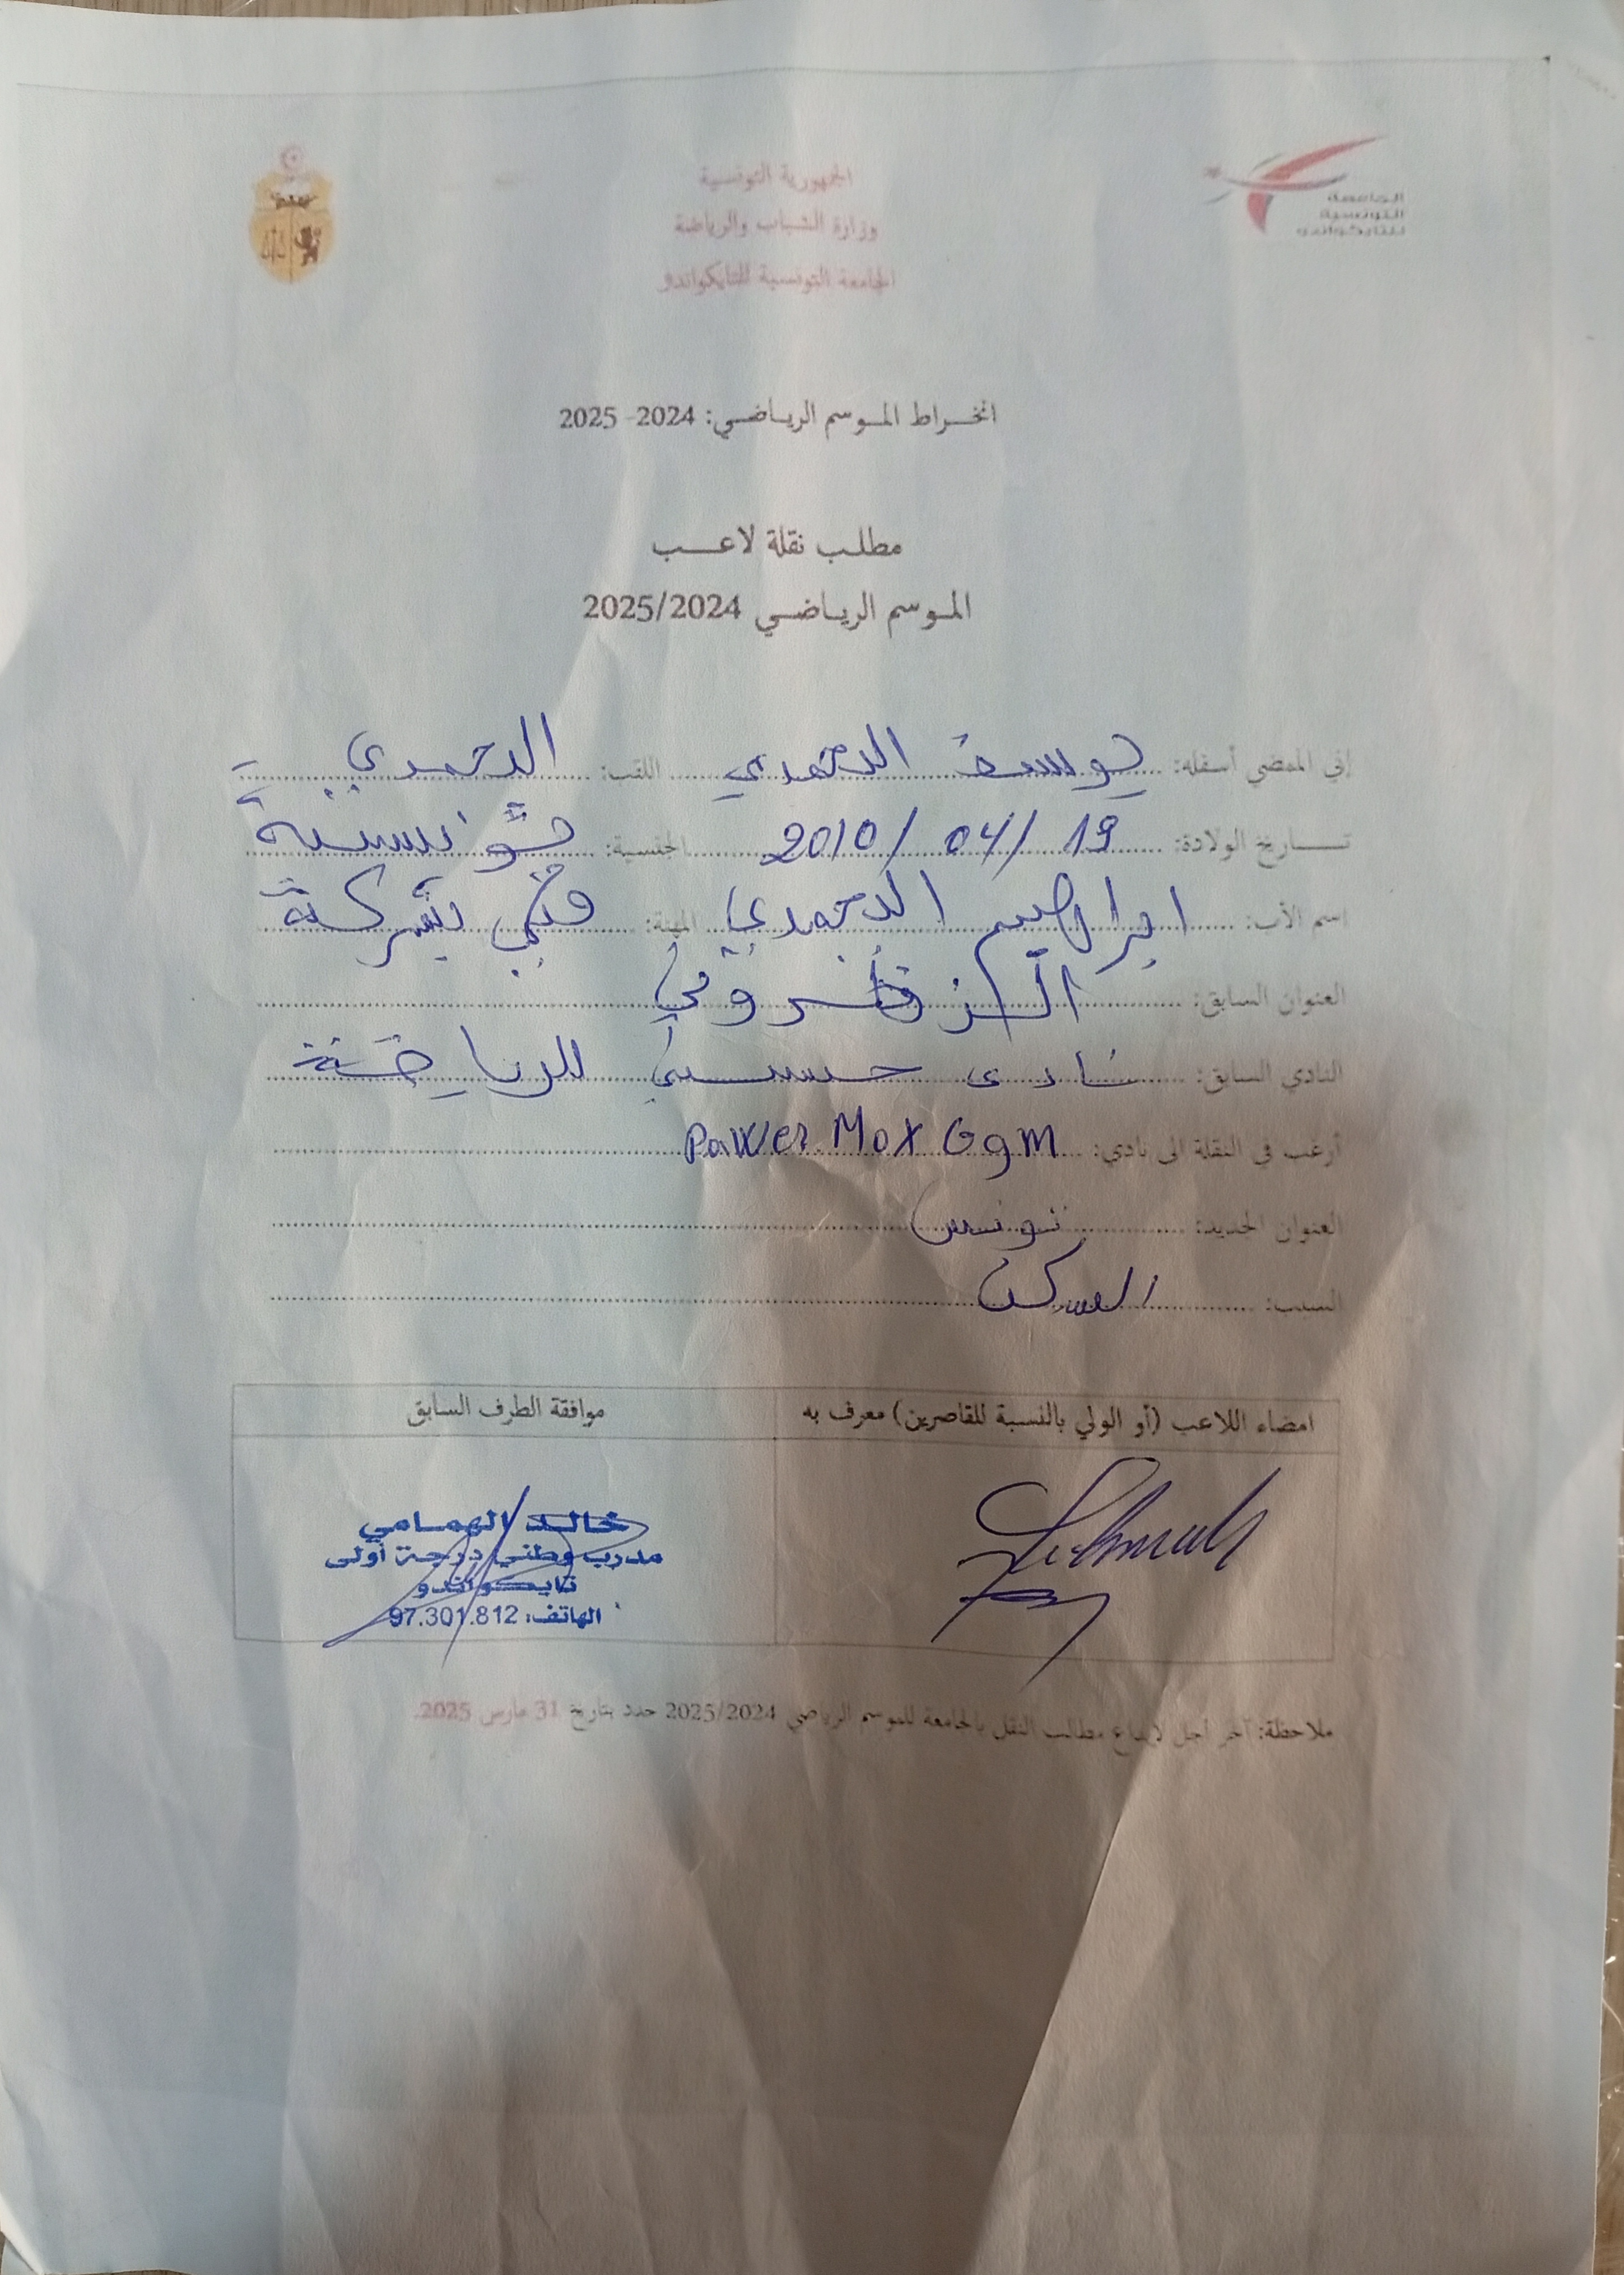 الجامعة
التونسية
للتايكواندو
الجمهورية التونسية
وزارة الشباب والرياضة
الجامعة التونسية للتايكواندو
انخراط الموسم الرياضي: 2024- 2025
مطلب نقلة لاعب
الموسم الرياضي 2025/2024
إني الممضي أسفله: يوسف الدحمدي اللقب: الدحمدي
تاريخ الولادة: 19 /04 /2010 الجنسية: تونسية
اسم الأب: ابراهيم الدحمدي المهنة: فني بشركة
العنوان السابق:
النادي السابق: نادي حسني للرياضة
أرغب في النقلة الى نادي: Pawer Max Gym
العنوان الجديد: تونس
السبب: السكن
امضاء اللاعب (أو الولي بالنسبة للقاصرين) معرف به
موافقة الطرف السابق
خالد الهمامي
مدرب وطني درجة أولى
تايكواندو
الهاتف: 97.301.812
ملاحظة: آخر أجل لإيداع مطالب النقل بالجامعة للموسم الرياضي 2025/2024 حدد بتاريخ 31 مارس 2025.